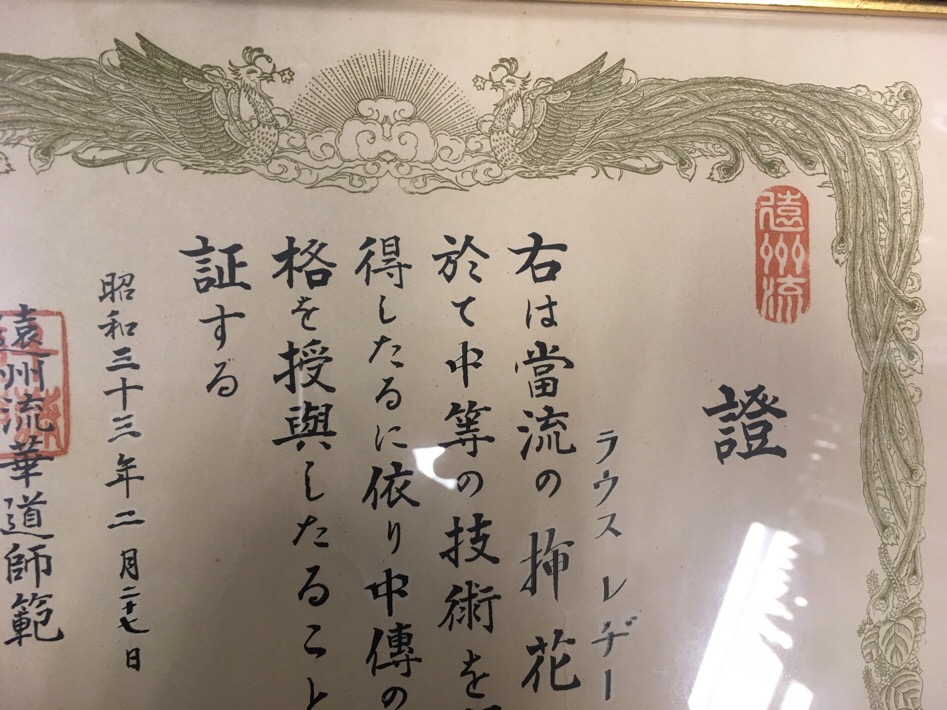 遠州流
證
ラウス レヂー
右は當流の挿花
於て中等の技術を
得したるに依り中傳の
格を授與したること
証する
昭和三十三年二月二十七日
遠州流華道師範